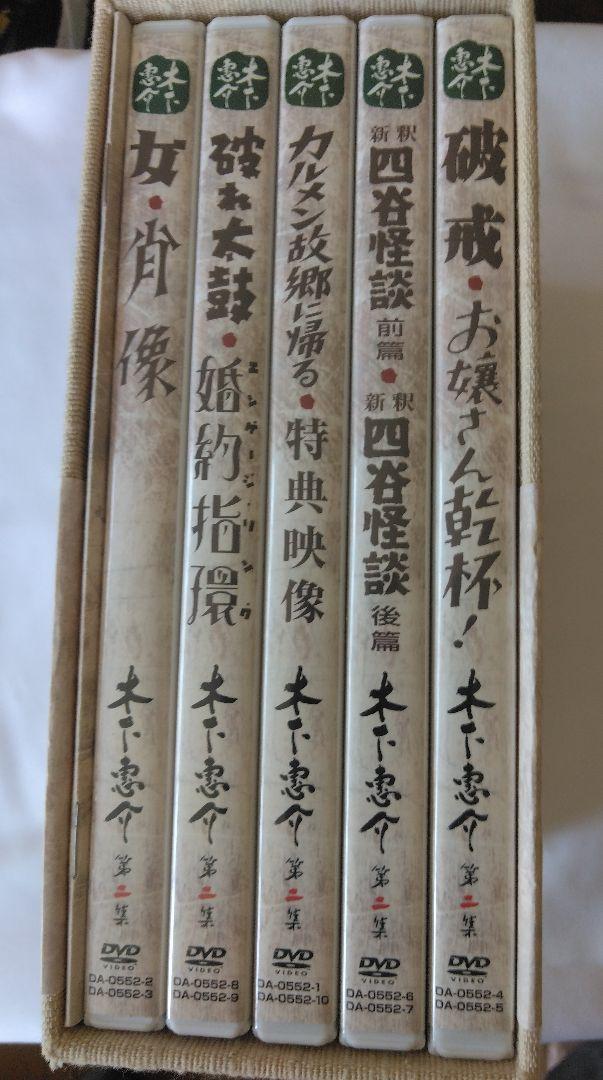 木下惠介
女・肖像
木下惠介
第二集
DVD
VIDEO
DA-0552-2
DA-0552-3
木下惠介
破れ太鼓・婚約指環
エンゲージ・リング
木下惠介
第二集
DVD
VIDEO
DA-0552-8
DA-0552-9
木下惠介
カルメン故郷に帰る・特典映像
木下惠介
第二集
DVD
VIDEO
DA-0552-1
DA-0552-10
木下惠介
新釈 四谷怪談 前篇・新釈 四谷怪談 後篇
木下惠介
第二集
DVD
VIDEO
DA-0552-6
DA-0552-7
木下惠介
破戒・お嬢さん乾杯!
木下惠介
第二集
DVD
VIDEO
DA-0552-4
DA-0552-5